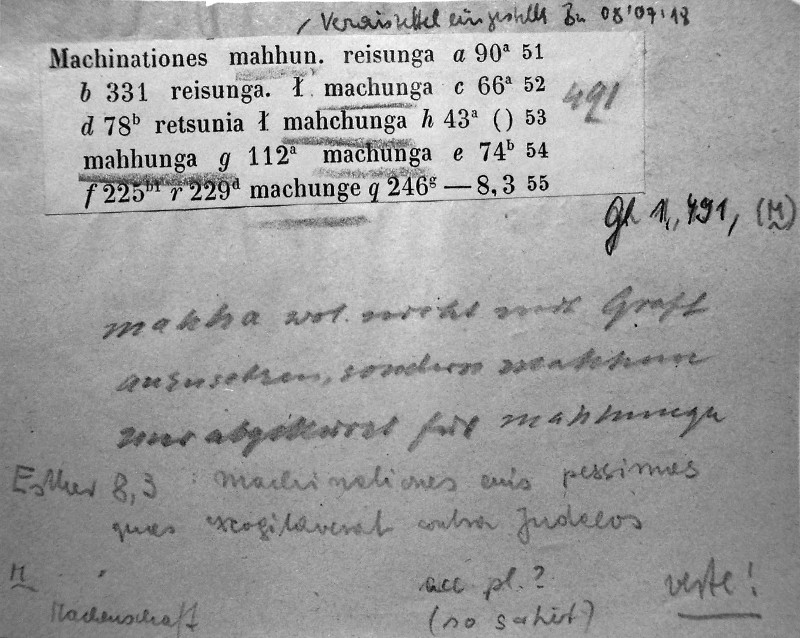 Verweiszettel eingestellt Bn 08.07.18
Machinationes mahhun. reisunga a 90ᵃ 51
b 331 reisunga. ł machunga c 66ᵃ 52
d 78ᵇ retsunia ł mahchunga h 43ᵃ () 53
mahhunga g 112ᵃ machunga e 74ᵇ 54
f 225ᵇ¹ r 229ᵈ machunge q 246ᵍ — 8, 3 55
491
Gl 1, 491, (M)
mahha wol nicht mit Graff
anzusetzen, sondern mahhun
nur abgekürzt für mahhunga
Esther 8,3 : Machinationes eius pessimas
quas excogitaverat contra Judaeos
M
acc pl.? verte!
Machenschaft